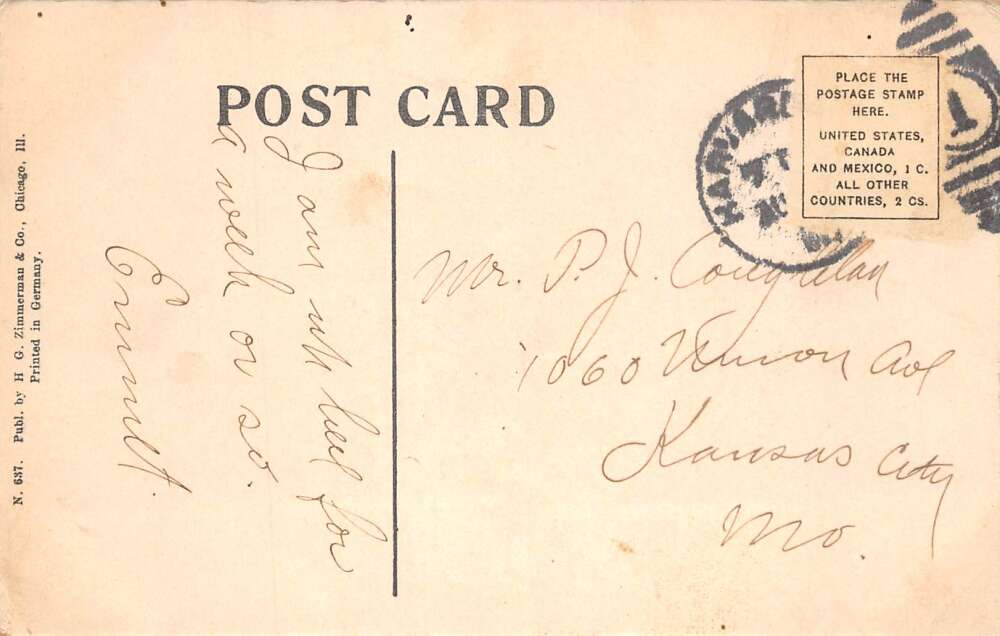 POST CARD
PLACE THE
POSTAGE STAMP
HERE.
UNITED STATES,
CANADA
AND MEXICO, 1 C.
ALL OTHER
COUNTRIES, 2 CS.
HARVARD
1
N. 637. Publ. by H. G. Zimmerman & Co., Chicago, Ill.
Printed in Germany.
I am here for
a week or so.
Emmett.
Mr. P. J. Coughlan
1060 Vernon Ave
Kansas City
Mo.